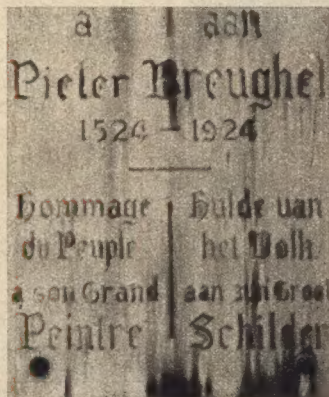 à aan
Pieter Breughel
1524 - 1924
hommage
du Peuple
à son Grand
Peintre
Hulde van
het Volk
aan zijn Groot
Schilder